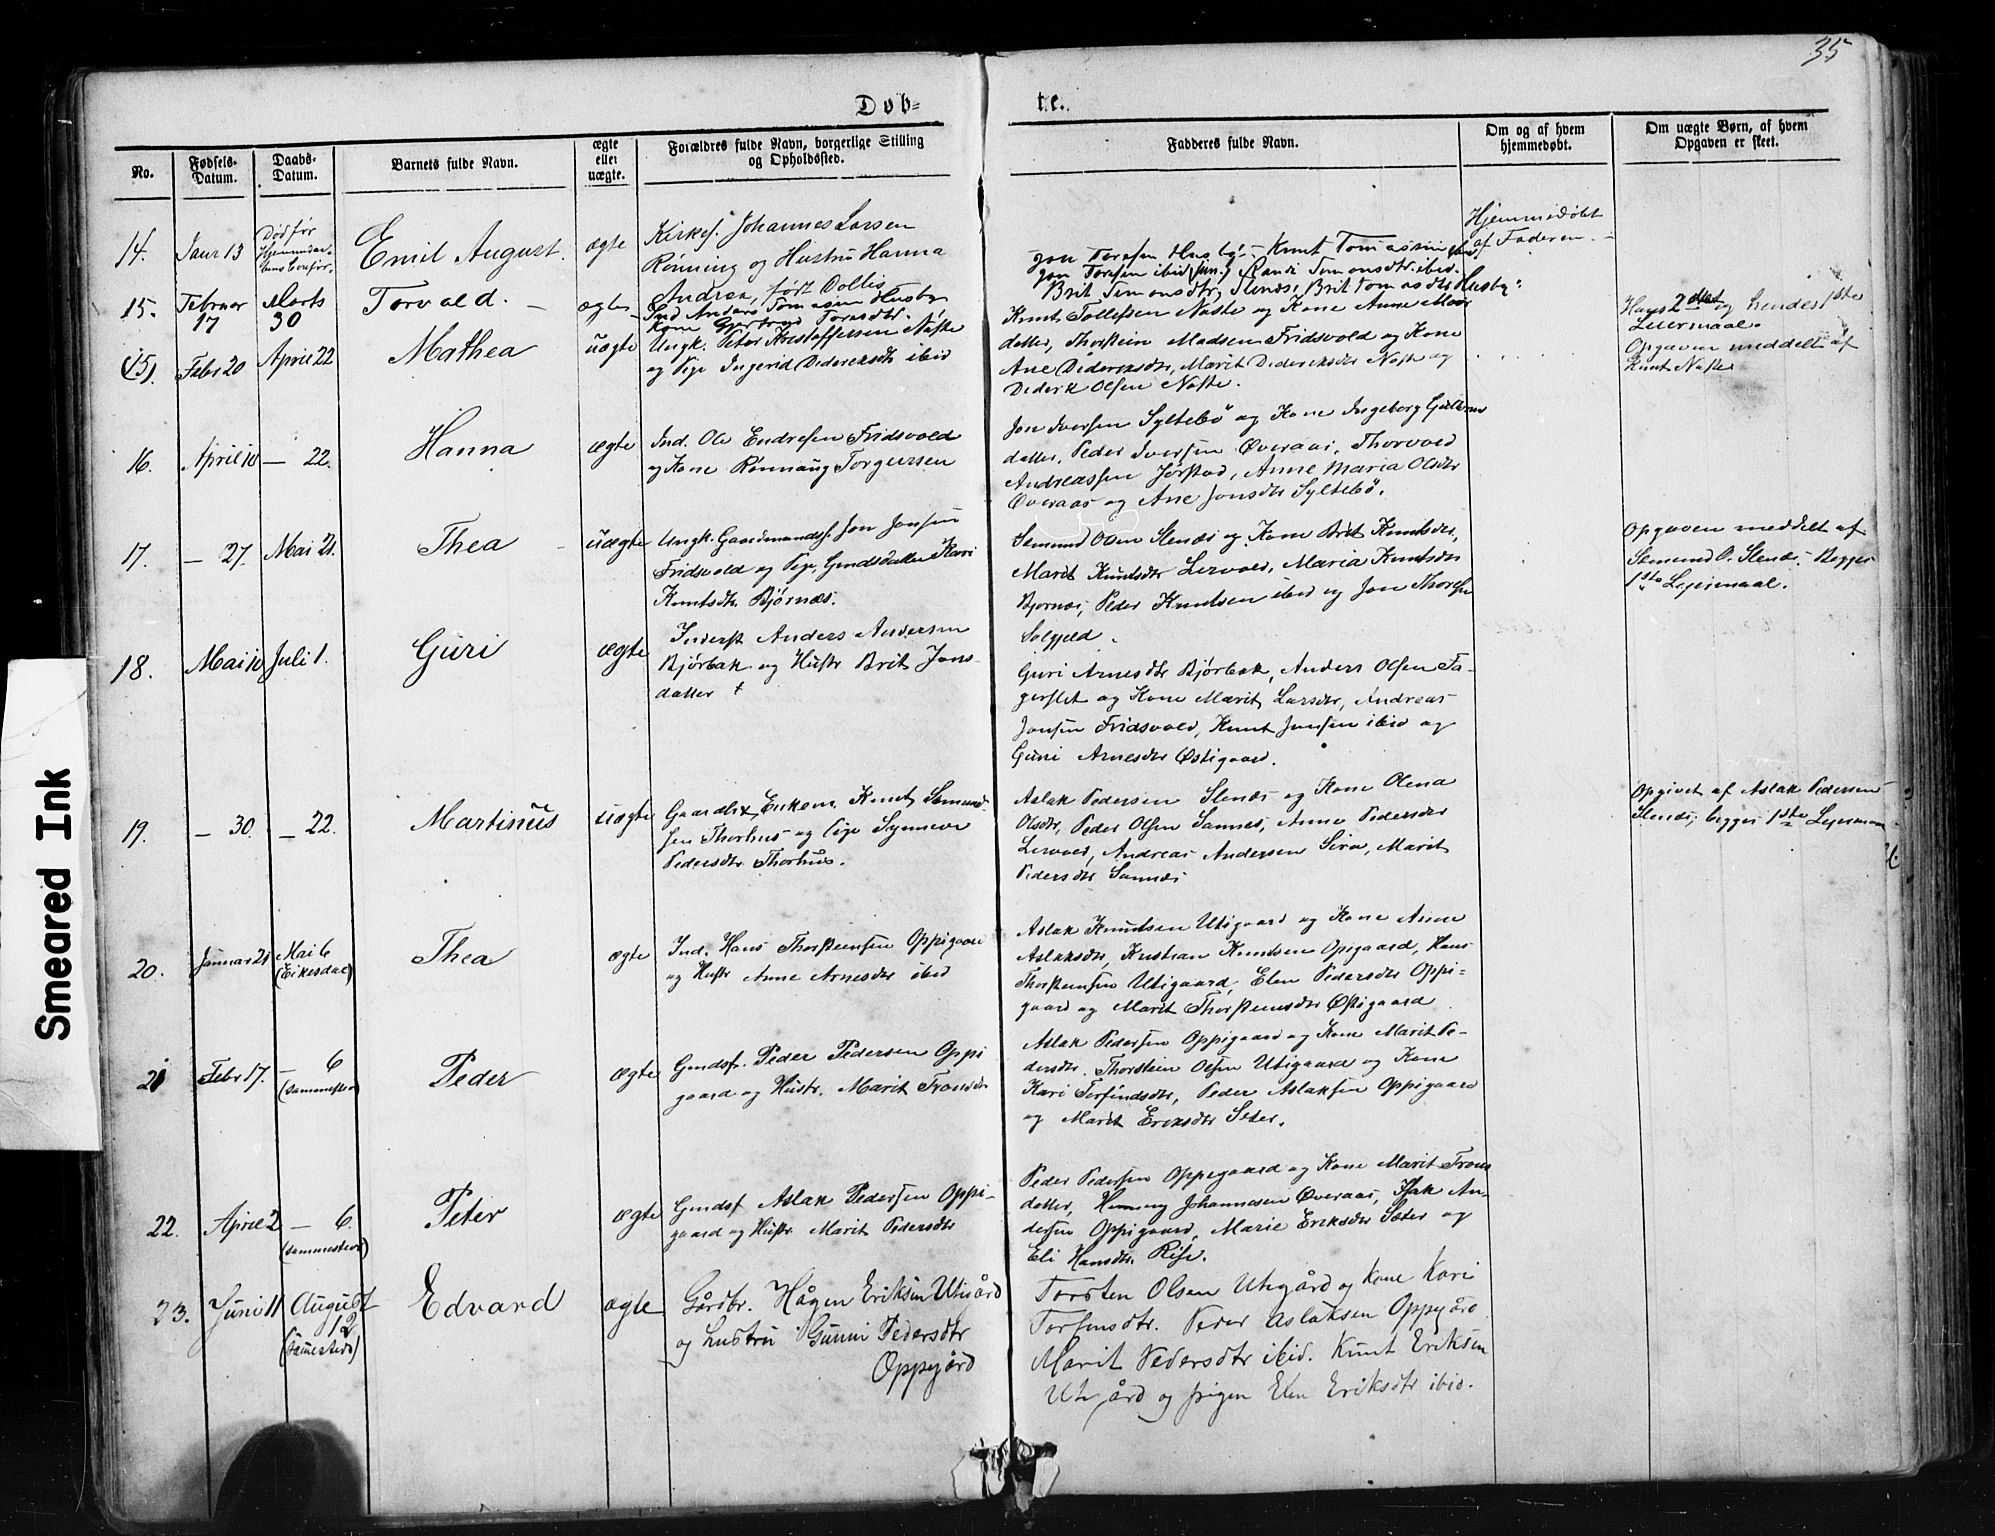 35
Døb=
te.
No.
Fødsels-
Datum.
Daabs-
Datum.
Barnets fulde Navn.
ægte
eller
uægte.
Forældres fulde Navn, borgerlige Stilling
og Opholdssted.
Fadderes fulde Navn.
Om og af hvem
hjemmedøbt.
Om uægte Børn, af hvem
Opgaven er skeet.
14.
Janr 13
Død før
Emil August.
ægte
Kirkes. Johannes Larsen
Rønning og Hustru Hanna
Andrea, født Dollis
Hjemmedøbt
af Faderen.
15.
Februar
17
Marts
30
Torvald.
ægte
Ind Anders Tomassen Husby
Kone Gjertrud Toresdtr.
Jon Toresen Husby, Knut Tomassen ibid
Jon Toresen ibid (jun.) Randi Simonsdtr ibid.
Brit Simonsdtr Slenes. Brit Tomasdtr Husby.
(15).
Febr 20
April 22
Mathea
uægte
Ungk. Peter Kristoffersen Nøste
og Pige Ingerid Didereksdtr ibid
Knut Tollefsen Nøste og Kone Anne Mor
datter, Thorstein Madsen Fridsvold og Kone
Ane Didereksdtr, Marit Didereksdtr Nøste og
Diderk Olsen Nøste.
Hans 2det og hendes 1ste
Leiermaal.
Opgaven meddelt af
Knut Nøste
16.
April 10
— 22.
Hanna
ægte
Ind. Ole Endresen Fridsvold
og Kone Rønnaug Torgersen
Jon Iversen Syltebø og Kone Ingeborg
datter, Peder Iversen Øveraas, Thorvald
Andreassen Jørstad, Anne Maria Olsdtr
Øveraas og Ane Jonsdtr Syltebø.
17.
— 27.
Mai 21.
Thea
uægte
Ungk. Gaardmands. Jon Jonsen
Fridsvold og Pige Gmdsdatter Kari
Knutsdtr. Bjørnæs.
Semund Olsen Slenæs og Kone Brit Knutsdtr,
Marit Knutsdtr Lervold, Maria Knutsdtr
Bjørnæs, Peder Knutsen ibid og Jon Thoresen
Solgjeld.
Opgaven meddelt af
Semund O. Slenæs. Begges
1ste Leiermaal.
18.
Mai 10
Juli 1.
Guri
ægte
Inderst Anders Andersen
Bjørbak og Hustr Brit Jons-
datter
Guri Arnesdtr Bjørbak, Anders Olsen Fa-
gerslet og Kone Marit Larsdtr, Andreas
Jonsen Fridsvold, Knut Jonsen ibid og
Guri Arnesdtr Østigaard.
19.
— 30.
— 22.
Martinus
uægte
Gaardbr, Enkem. Knut Semund-
sen Thorhus og Pige Synneve
Pedersdtr Thorhus.
Aslak Pedersen Slenæs og Kone Olena
Olsdtr, Peder Olsen Sannes, Anne Pedersdtr
Lervold, Andreas Andersen Sira, Marit
Pedersdtr Sannæs
Opgivet af Aslak Pedersen
Slenæs, begges 1ste Leierman
20.
Januar 21
Mai 6
(Eikesdal)
Thea
ægte
Ind. Hans Thorsteinsen Oppigaard
og Hustr Anne Arnesdtr ibid
Aslak Knutsen Utigaard og Kone Anne
Aslaksdtr, Kristian Knutsen Opigaard, Hans
Thorsteinsen Utigaard, Elen Pedersdtr Oppi=
gaard og Marit Thorsteinsdtr Østigaard
21
Febr 17.
— 6
(sammested)
Peder
ægte
Gmdsf. Peder Pedersen Oppi
gaard og Hustr. Marit Tronsdtr
Aslak Pedersen Oppigaard og Kone Marit Pe-
dersdtr. Thorstein Olsen Utigaard og Kone
Kari Torfindsdtr, Peder Aslaksen Oppigaard
og Marit Eriksdtr Sæter.
22.
April 2
— 6.
(sammested)
Peter
ægte
Gmdsf Aslak Pedersen Oppi-
gaard og Hustr Marit Pedersdtr
Peder Pedersen Oppigaard og Kone Marit Trons
datter, Henning Johannesen Øveraas, Isak An-
dersen Oppigaard, Marie Eriksdtr Sæter og
Eli Hansdtr. Rise.
23.
Juni 11
August
12
(samested)
Edvard
ægte
Gårdbr. Hågen Eriksen Utigård
og hustru Gunni Pedersdtr
Oppigård
Torsten Olsen Utigård og kone Kari
Torfinsdtr. Peder Aslaksen Oppigård
Marit Pedersdtr ibid. Knut Eriksen
Utigård og pigen Elen Eriksdtr ibid.
Smeared Ink